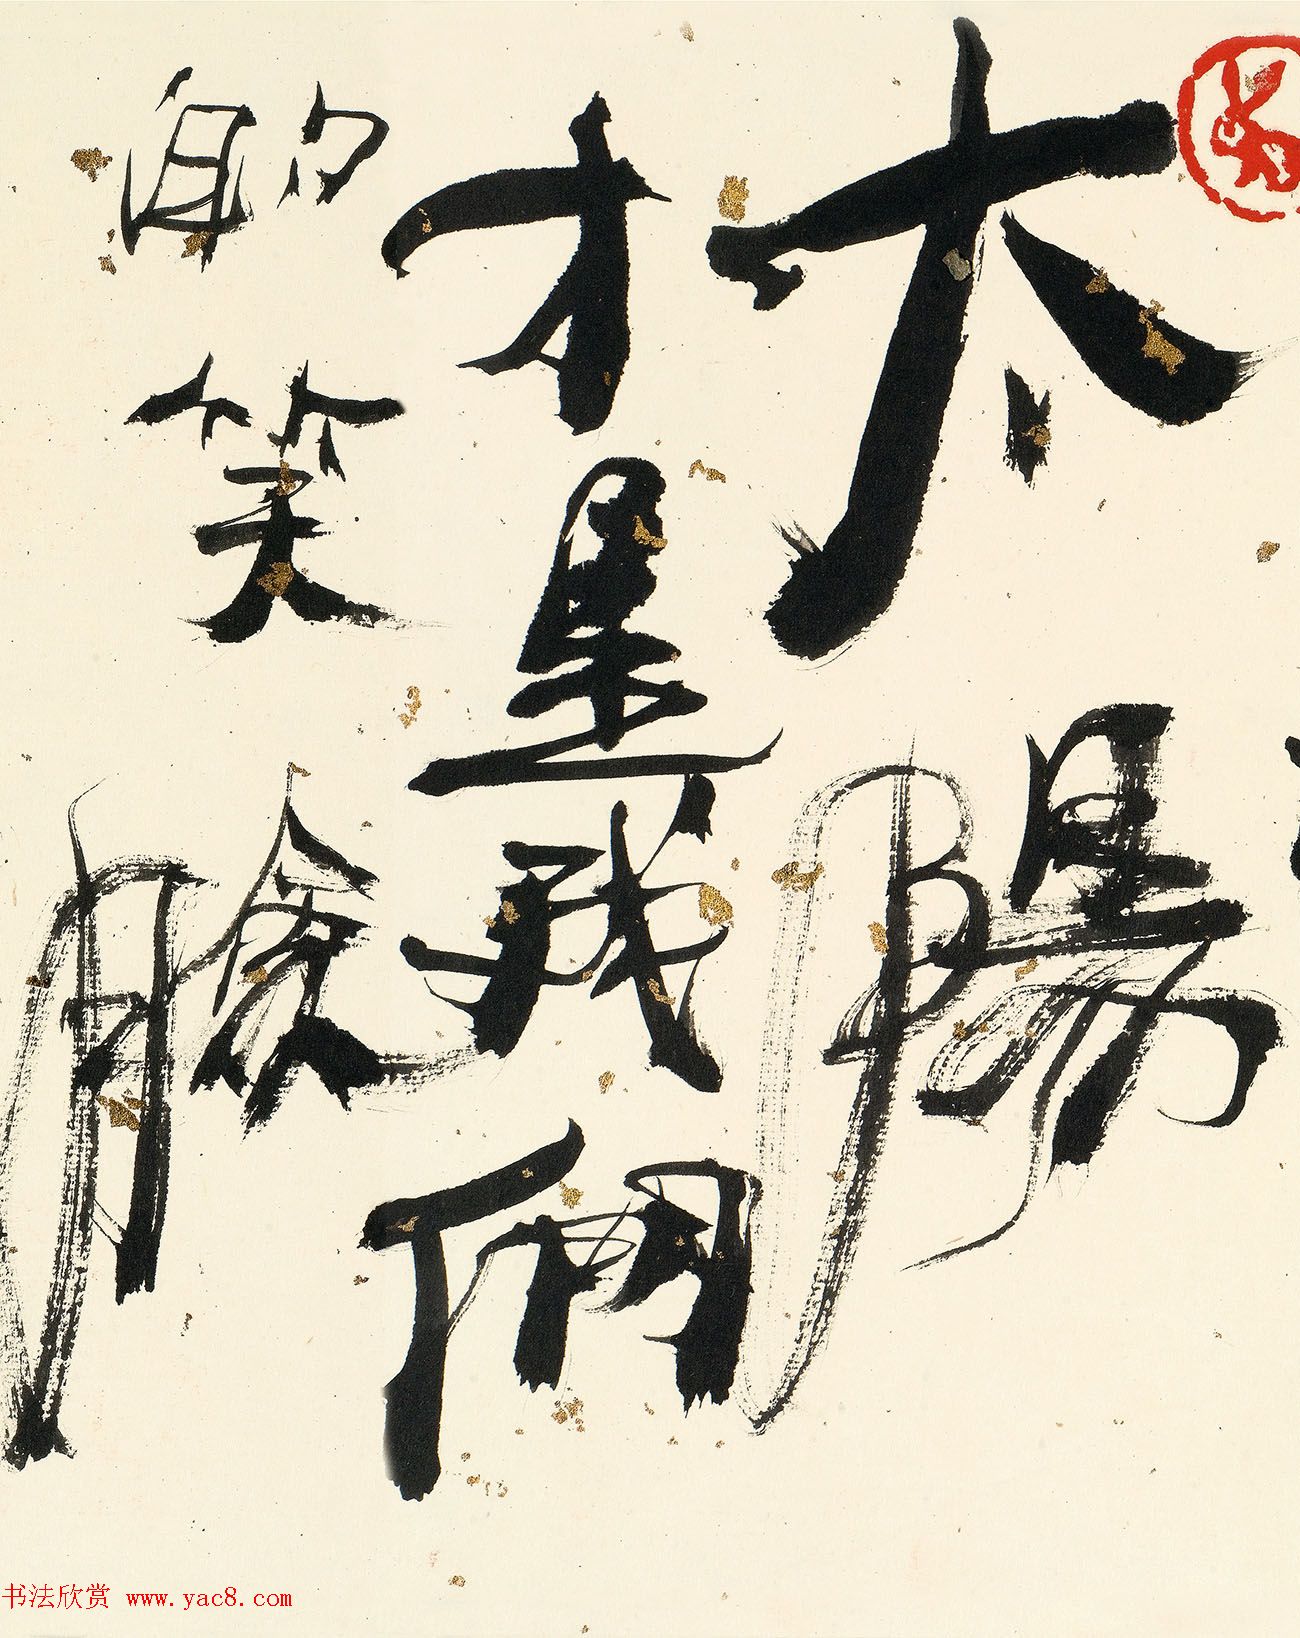 太陽
才是我們
的笑臉
书法欣赏 www.yac8.com